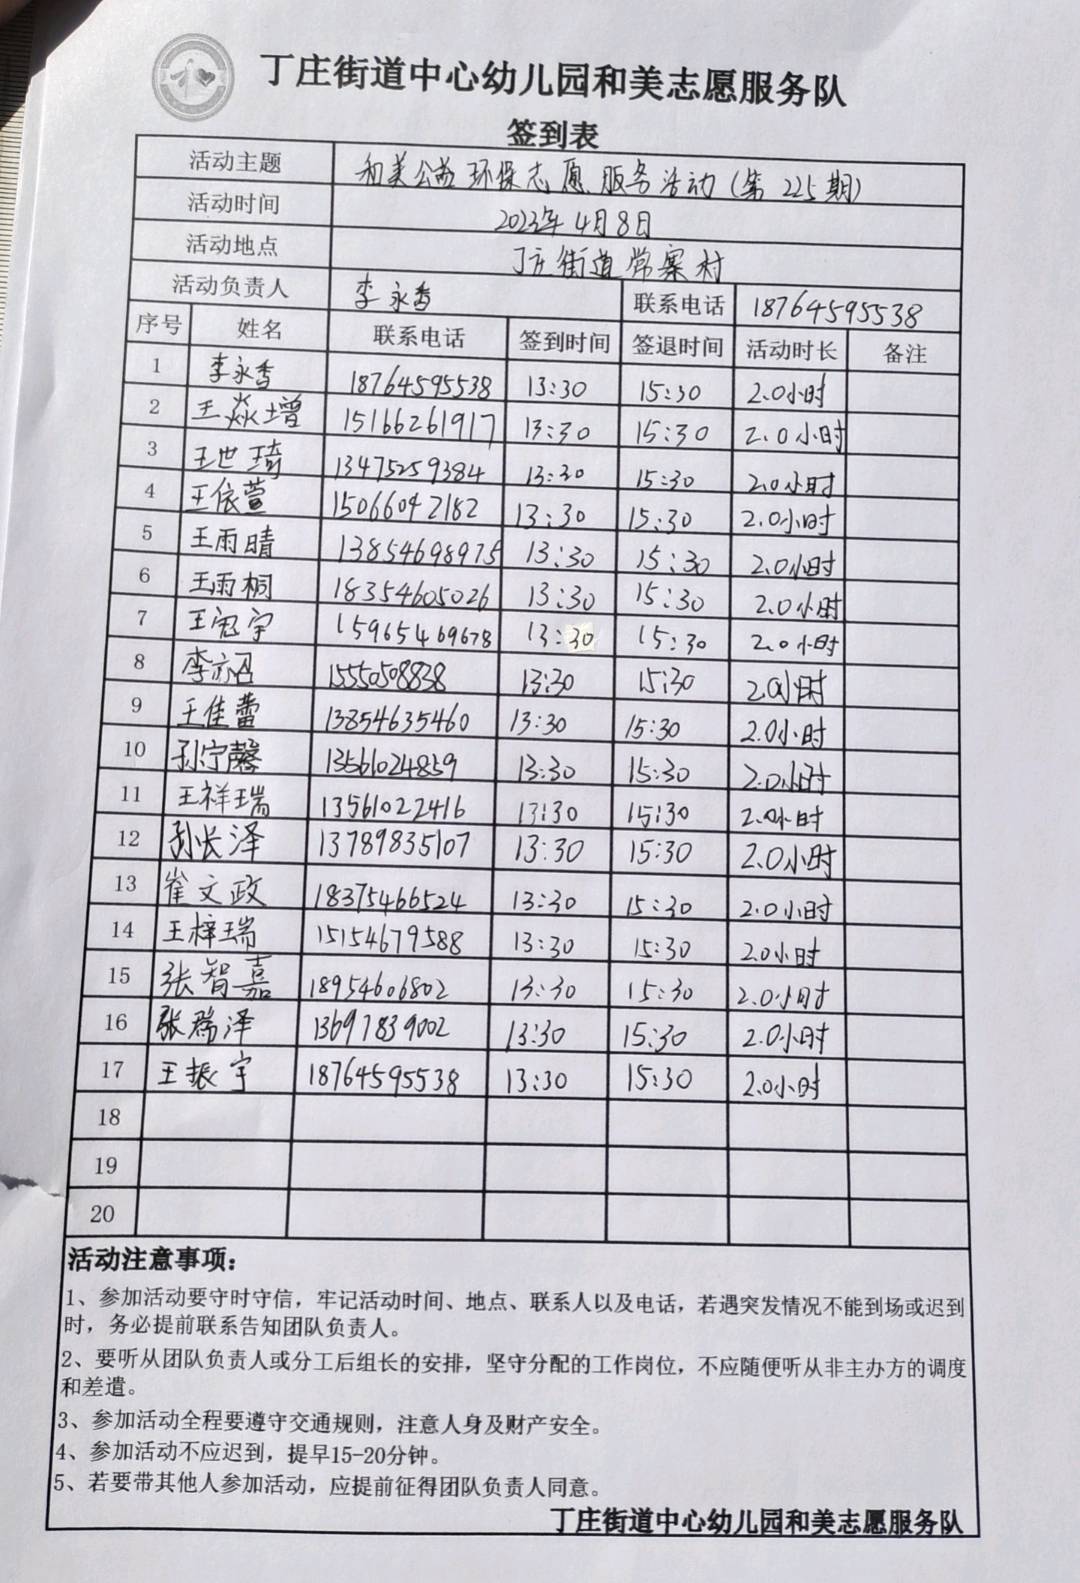 丁庄街道中心幼儿园和美志愿服务队
签到表
活动主题 和美公益环保志愿服务活动(第225期)
活动时间 2023年4月8日
活动地点 丁庄街道常寨村
活动负责人 李永香 联系电话 18764595538
序号 姓名 联系电话 签到时间 签退时间 活动时长 备注
1 李永香 18764595538 13:30 15:30 2.0小时
2 王焱增 15166261917 13:30 15:30 2.0小时
3 王世琦 13475259384 13:30 15:30 2.0小时
4 王依萱 15066042182 13:30 15:30 2.0小时
5 王雨晴 13854698975 13:30 15:30 2.0小时
6 王雨桐 18354605026 13:30 15:30 2.0小时
7 王冠宇 15965469678 13:30 15:30 2.0小时
8 李 15550508838 13:30 15:30 2.0小时
9 王佳蕾 13854635460 13:30 15:30 2.0小时
10 孙宁馨 13561024859 13:30 15:30 2.0小时
11 王祥瑞 13561022416 13:30 15:30 2.0小时
12 孙长泽 13789835107 13:30 15:30 2.0小时
13 崔文政 18375466524 13:30 15:30 2.0小时
14 王梓瑞 15154679588 13:30 15:30 2.0小时
15 张智嘉 18954606802 13:30 15:30 2.0小时
16 张瑞泽 13697839002 13:30 15:30 2.0小时
17 王振宇 18764595538 13:30 15:30 2.0小时
18
19
20
活动注意事项:
1、参加活动要守时守信，牢记活动时间、地点、联系人以及电话，若遇突发情况不能到场或迟到
时，务必提前联系告知团队负责人。
2、要听从团队负责人或分工后组长的安排，坚守分配的工作岗位，不应随便听从非主办方的调度
和差遣。
3、参加活动全程要遵守交通规则，注意人身及财产安全。
4、参加活动不应迟到，提早15-20分钟。
5、若要带其他人参加活动，应提前征得团队负责人同意。
丁庄街道中心幼儿园和美志愿服务队